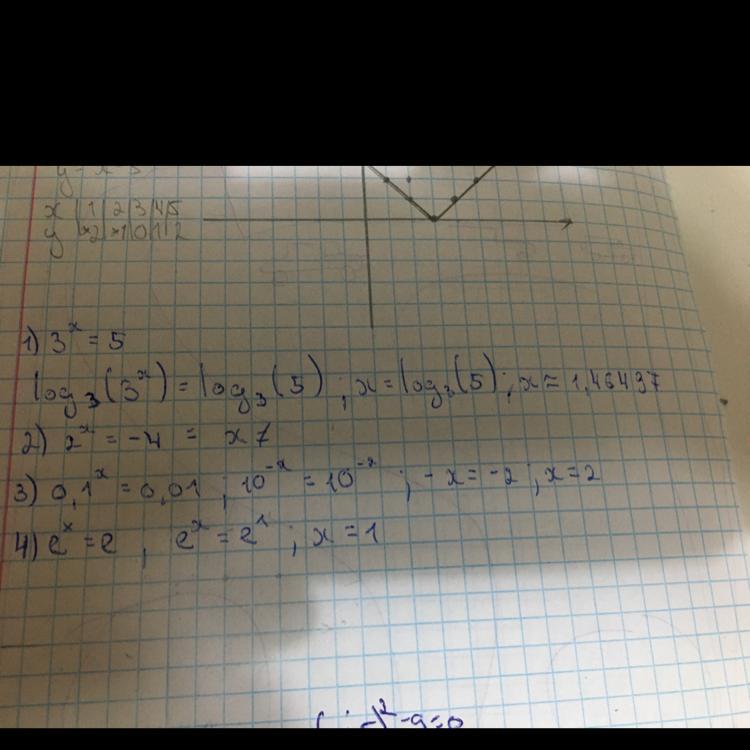 x | 1 | 2 | 3 | 4 | 5
y | -2 | -1 | 0 | 1 | 2
1) 3^x = 5
log₃(3^x) = log₃(5) ; x = log₃(5) ; x ≈ 1,46497
2) 2^x = -4 = x 7
3) 0,1^x = 0,01 ; 10^-x = 10^-x ; -x = -2 ; x = 2
4) e^x = e , e^x = e^1 ; x = 1